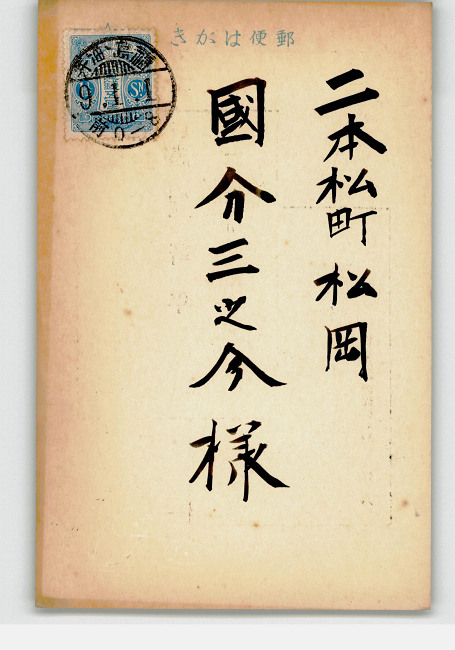 郵便はがき
二本松町 松岡
國分三之今様
9.1.1